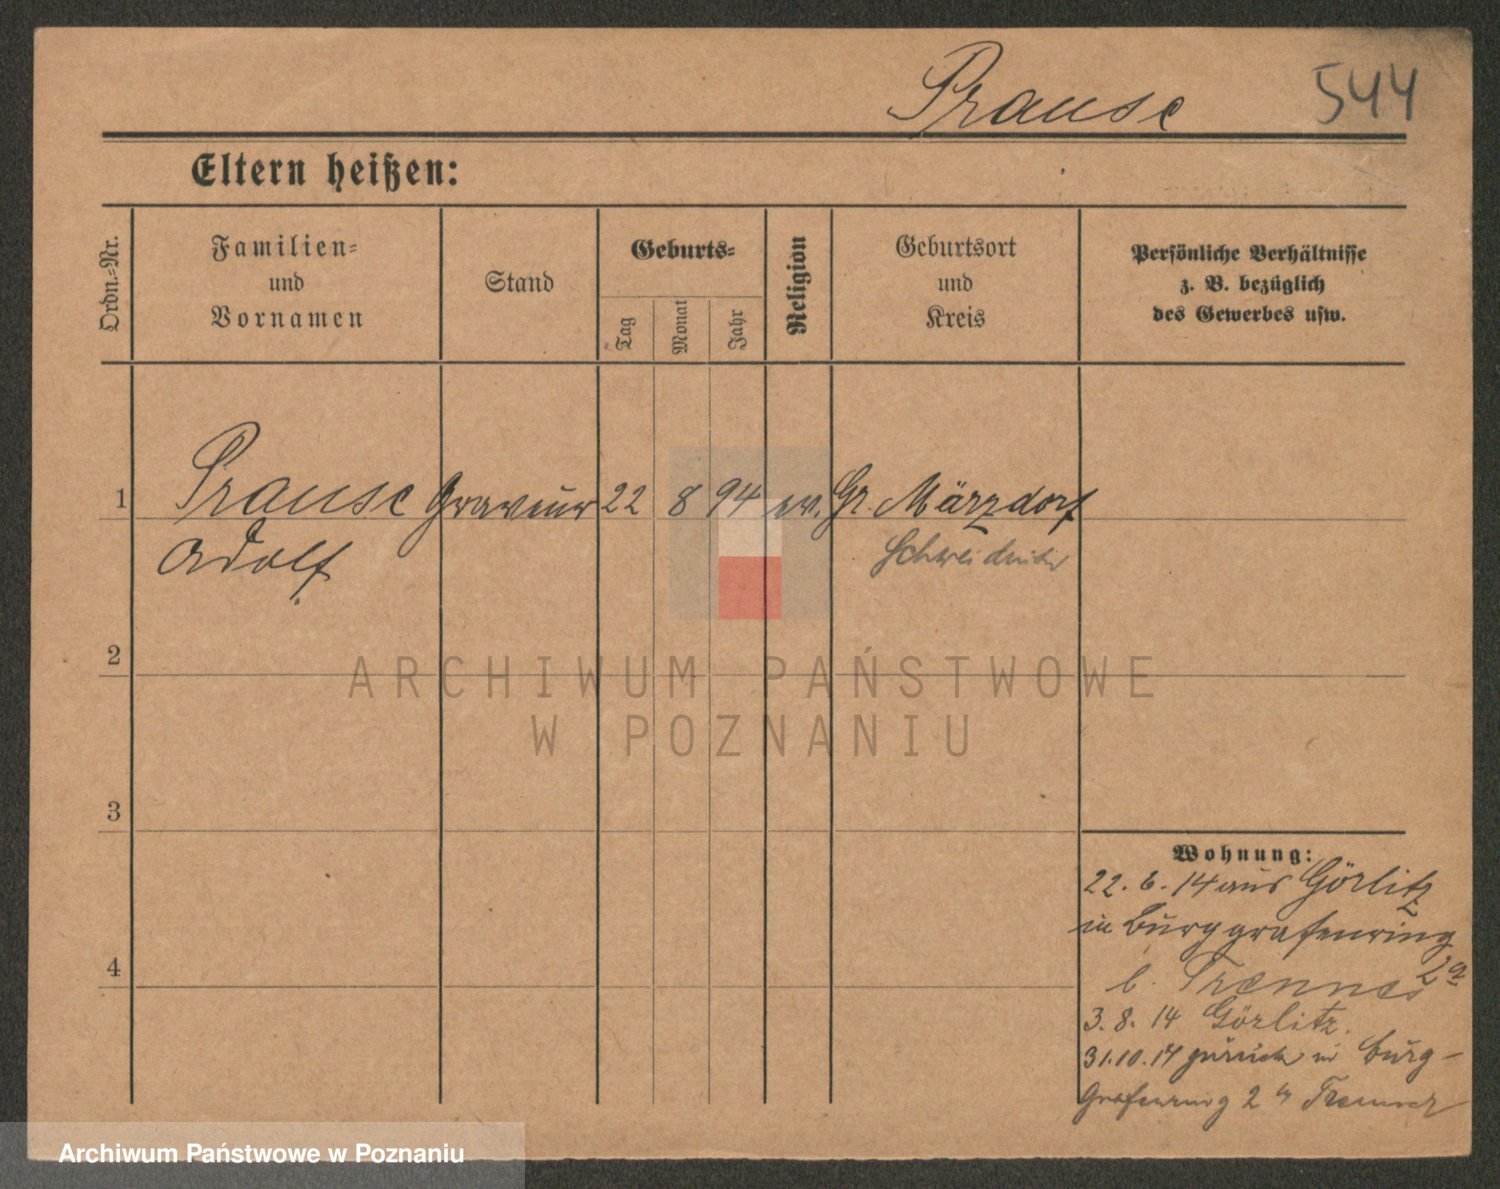 Prause 544
Eltern heißen:
Ordn.-Nr.
Familien-
und
Vornamen
Stand
Geburts-
Tag
Monat
Jahr
Religion
Geburtsort
und
Kreis
Persönliche Verhältnisse
z. B. bezüglich
des Gewerbes usw.
1 Prause Graveur 22 8 94 ev. Gr. Märzdorf
Adolf Schweidnitz
2
ARCHIWUM PAŃSTWOWE
W POZNANIU
3
Wohnung:
22. 6. 14 aus Görlitz
in Burggrafenring
4
2a
b.
3. 8. 14 Görlitz.
31.10.14 zurück in Burg-
grafenring 2
Archiwum Państwowe w Poznaniu